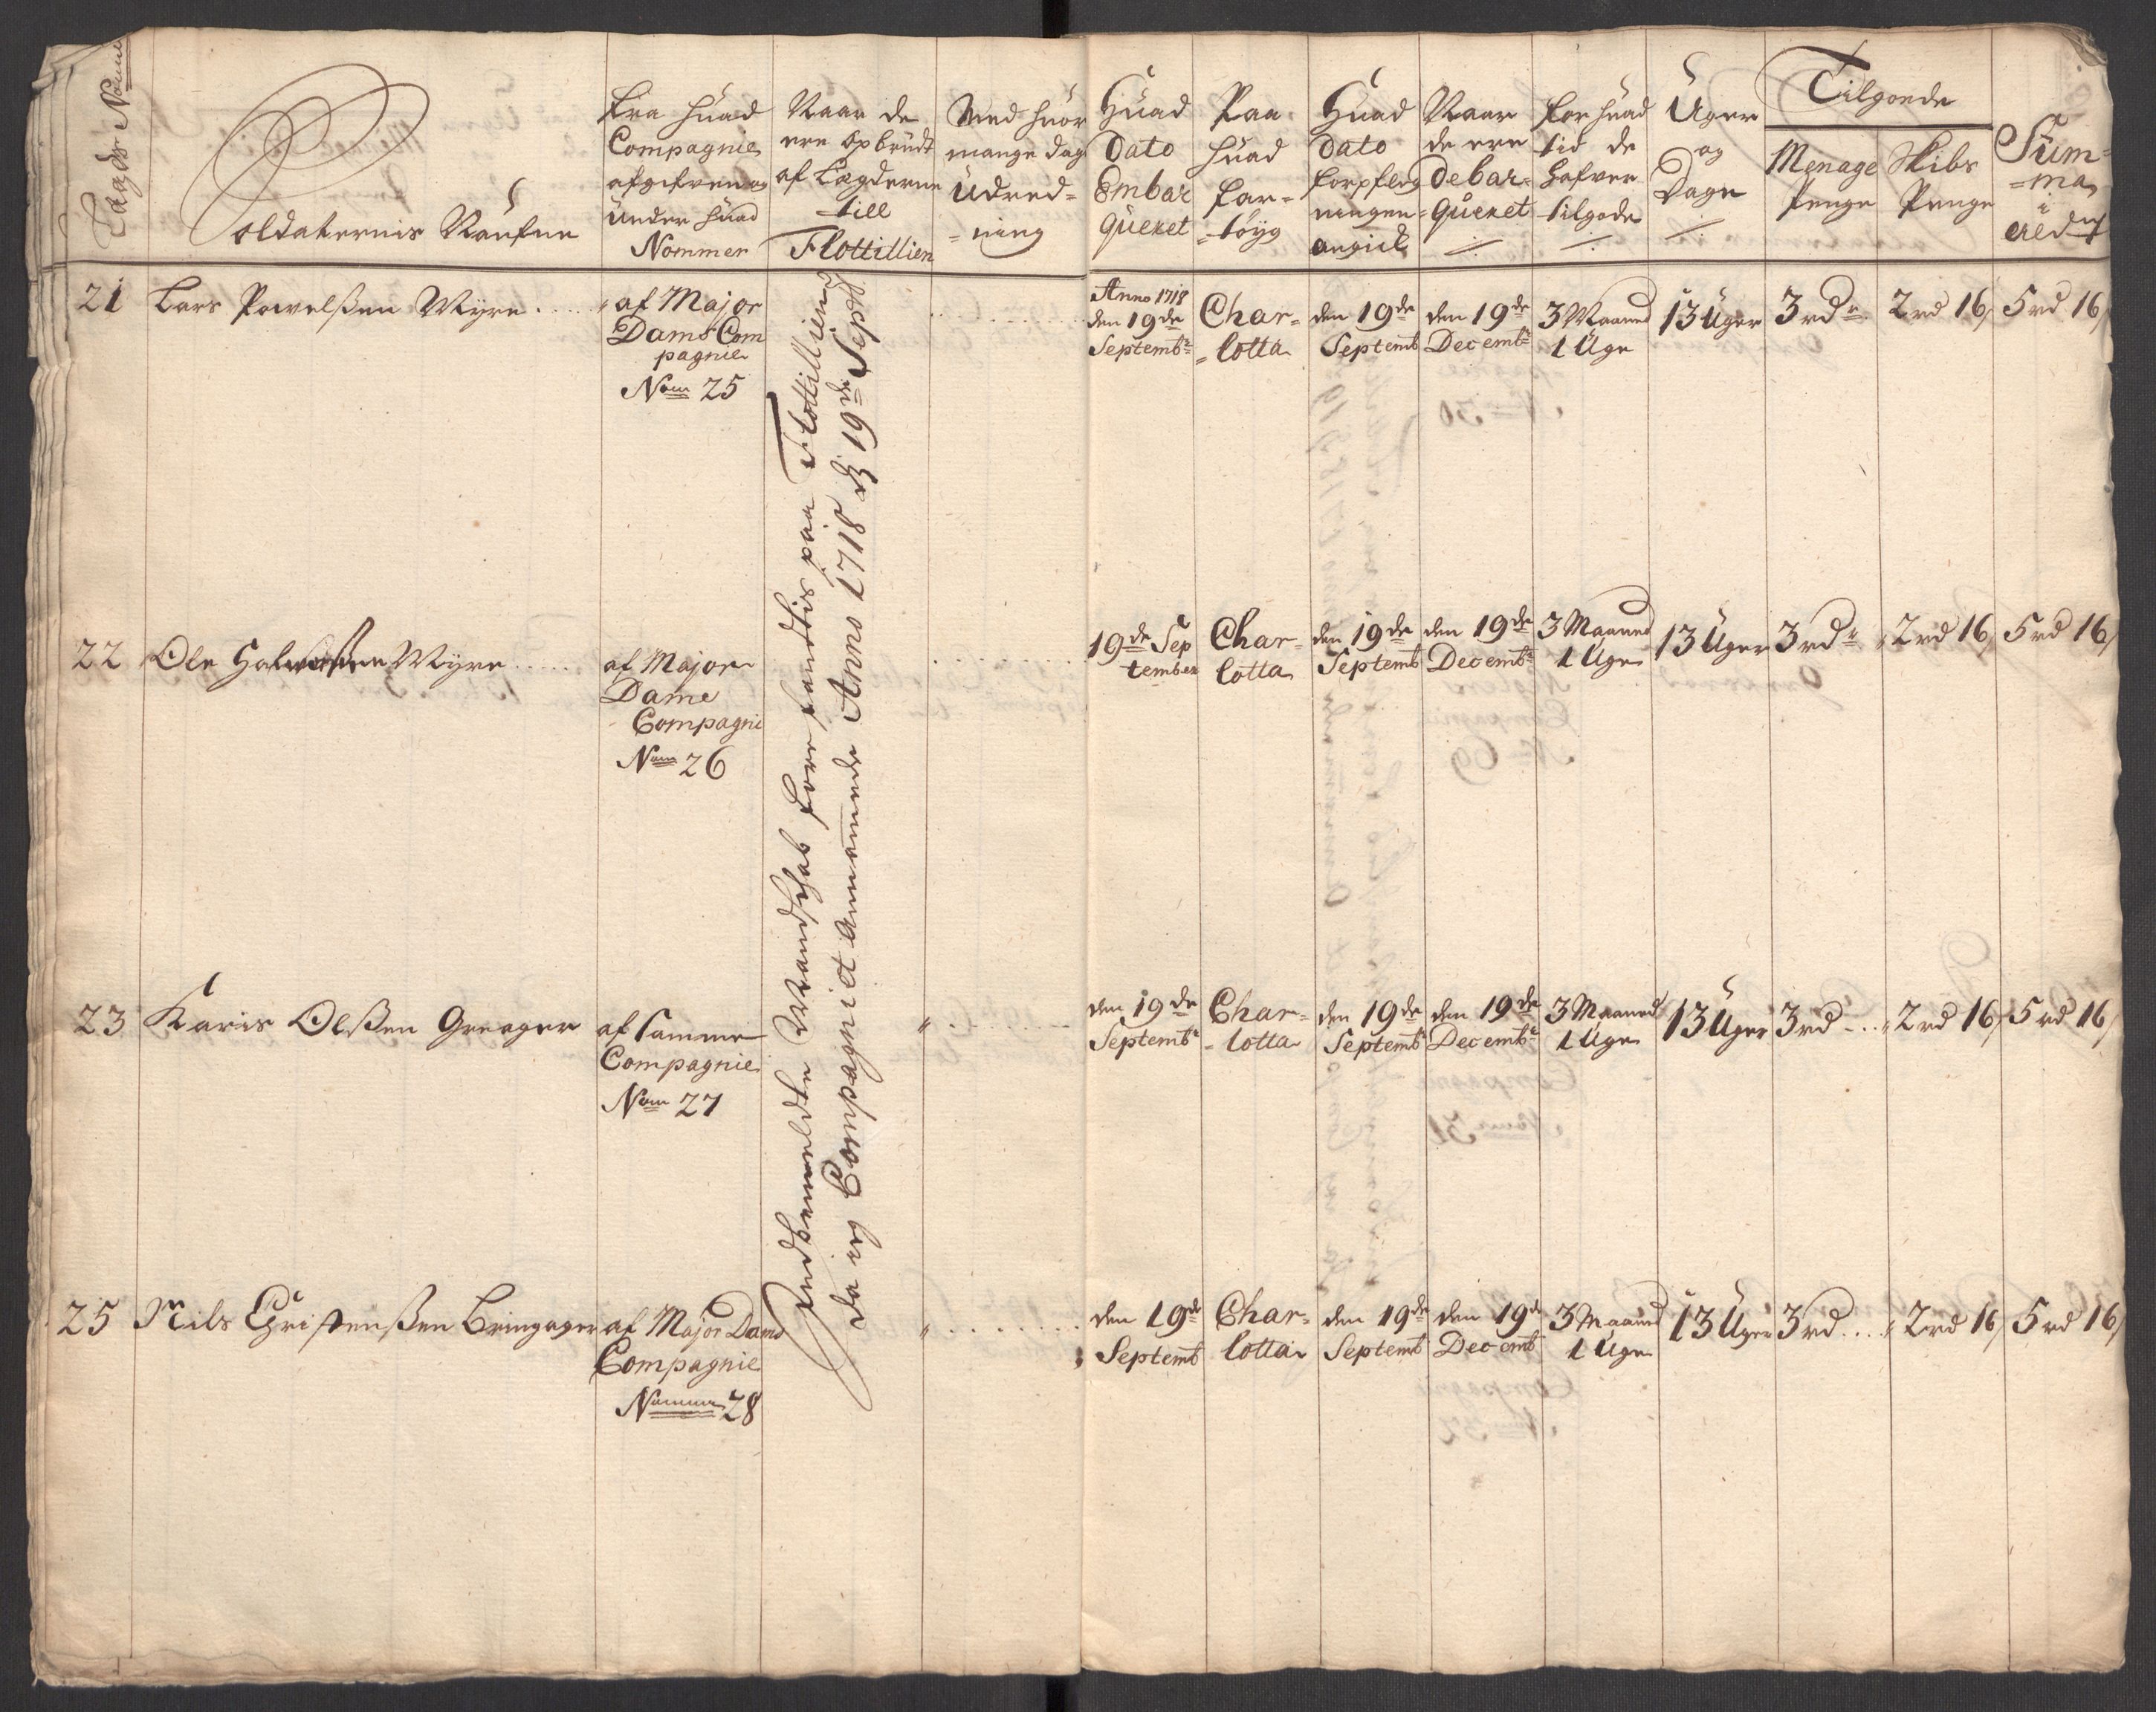 Laagds Nomr
Soldaternis Naufne
Fra huad
Compagnie
afgifven og
Under huad
Nommer
Naar de
ere opbrudt
af Lægderne
till
Flottillien
Med huor
mange dag
Udred=
=ning
Huad
Dato
Embar
queret
Paa
huad
Far=
=töyg
Huad
Dato
forpfleg
ningen=
angick
Naar
de ere
Debar=
queret
For huad
tid de
hafver
tilgode
Uger
og
Dage
Tilgode
Menage
Penge
Skibs
Penge
Sum=
=ma
i
Credit
21 Lars Powelsen Myre
af Major
Dams Com
pagnie
Nom 25
Anno 1718
den 19de
Septembr
Char=
=lotta
den 19de
Septemb
den 19de
Decembr
3 Maaned
1 Uge
13 Uger
3 rdr
2 rd 16
5 rd 16
22 Ole Myre
af Major
Dame
Compagni
Nom 26
19de Sep
tember
Char=
lotta
den 19de
Septemb
den 19de
Decembr
3 Maaned
1 Uge
13 Uger
3 rdr
2 rd 16
5 rd 16
23 Karis Olsen Greager
af samme
Compagnie
Nom 27
den 19de
Septembr
Char=
=lotta
den 19de
Septembr
den 19de
Decembr
3 Maaned
1 Uge
13 Uger
3 rd
2 rd 16
5 rd 16
25 Nils Christensen Bringager
af Major Dams
Compagnie
Nommer 28
den 19de
Septemb
Char=
lotta
den 19de
Septemb
den 19d
Decemb
3 Maaned
1 Uge
13 Uger
3 rd
2 rd 16
5 rd 16
Indbemeldte Mandschab forefandtis paa Flottillien
da ieg Compagniet annammede Anno 1718 d 19de Sept